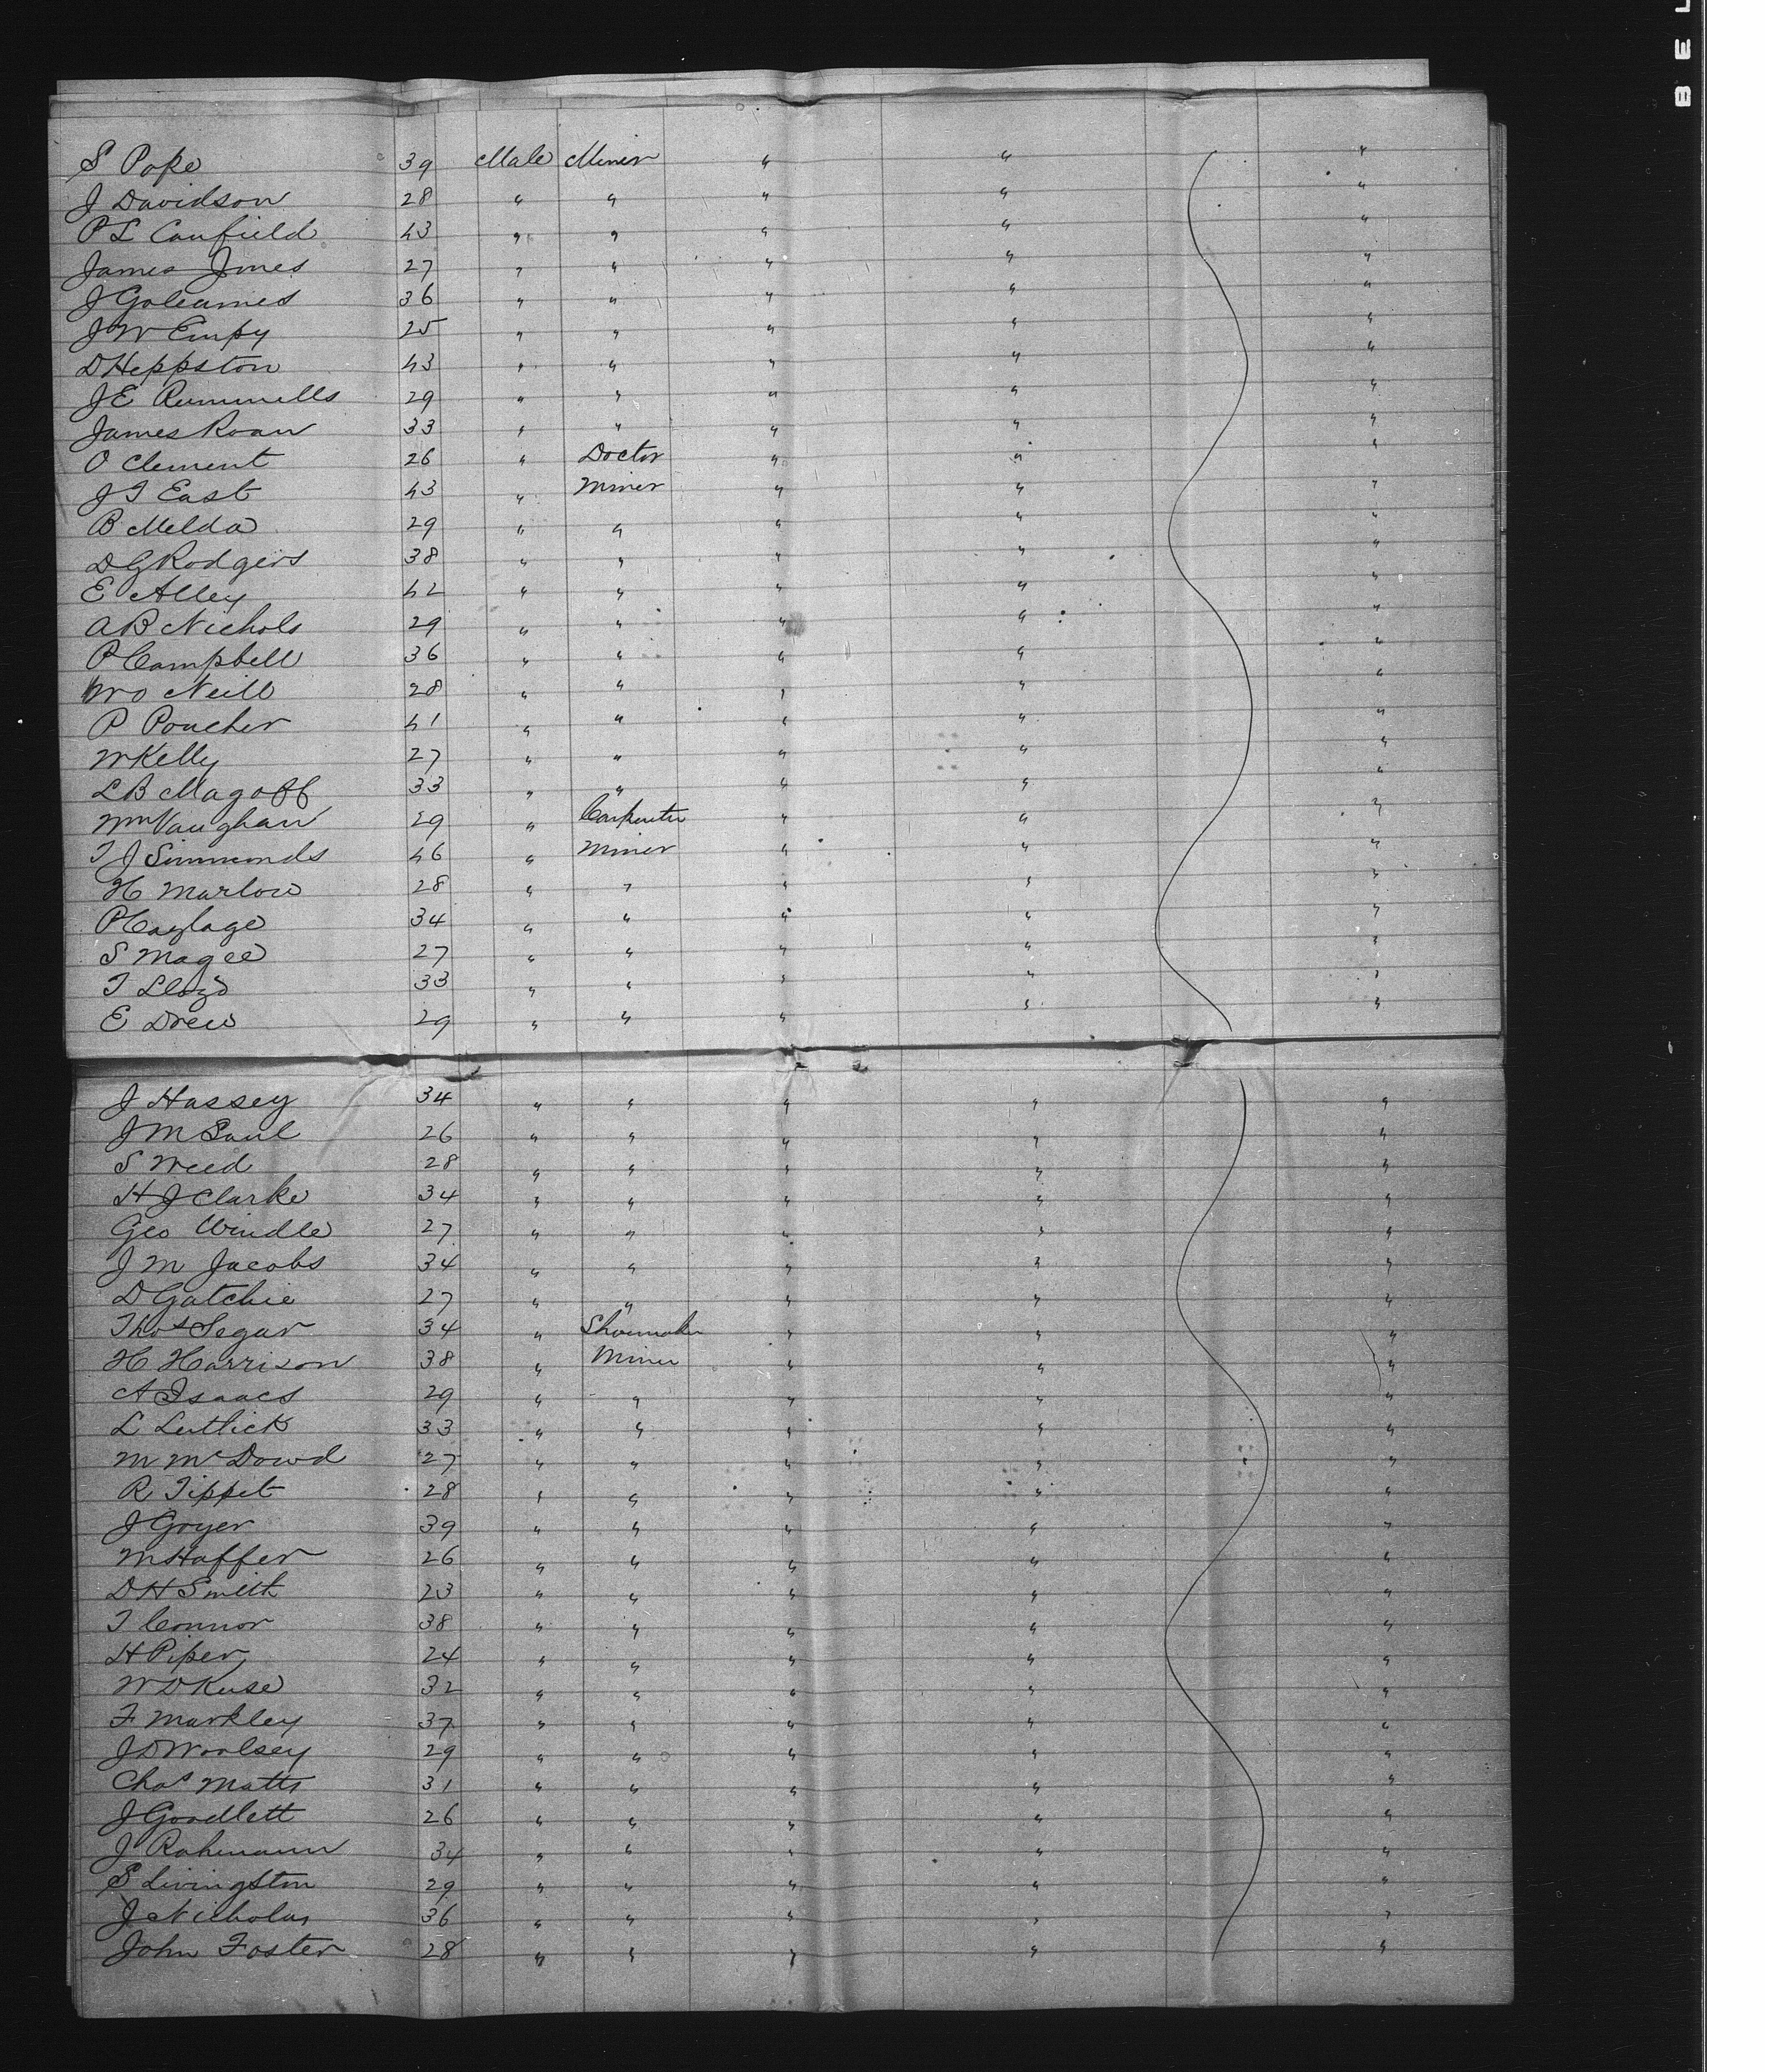 B E L
S Pope 39 Male Miner " " "
J Davidson 28 " " " " "
P L Canfield 43 " " " " "
James Jones 27 " " " " "
J Goleames 36 " " " " "
J W Empy 25 " " " " "
D Heppston 43 " " " " "
J E Rummells 29 " " " " "
James Roan 33 " " " " "
O Clement 26 " Doctor " " "
J T East 43 " Miner " " "
B Melda 29 " " " " "
D G Rodgers 38 " " " " "
E Alley 42 " " " " "
A B Nichols 29 " " " " "
P Campbell 36 " " " " "
W O Neill 28 " " " " "
P Poucher 41 " " " " "
W Kelly 27 " " " " "
L B Magoff 33 " " " " "
Wm Vaughan 29 " Carpenter " " "
T J Simmonds 46 " Miner " " "
H Marlow 28 " " " " "
P Caylage 34 " " " " "
S Magee 27 " " " " "
T Lloyd 33 " " " " "
E Drew 29 " " " " "
J Hassey 34 " " " " "
J M Saul 26 " " " " "
S Weed 28 " " " " "
H J Clarke 34 " " " " "
Geo Windle 27 " " " " "
J M Jacobs 34 " " " " "
D Gatchie 27 " " " " "
Thos Segar 34 " Shoemaker " " "
H Harrison 38 " Miner " " "
A Isaacs 29 " " " " "
L Lutlick 33 " " " " "
M McDowd 27 " " " " "
R Tippet 28 " " " " "
J Goyer 39 " " " " "
M Haffer 26 " " " " "
D H Smith 23 " " " " "
T Connor 38 " " " " "
H Piper 24 " " " " "
W D Kuse 32 " " " " "
F Markley 37 " " " " "
J D Woolsey 29 " " " " "
Chas Matts 31 " " " " "
J Goodlett 26 " " " " "
J Rahmann 34 " " " " "
S Livingston 29 " " " " "
J Nicholas 36 " " " " "
John Foster 28 " " " " "